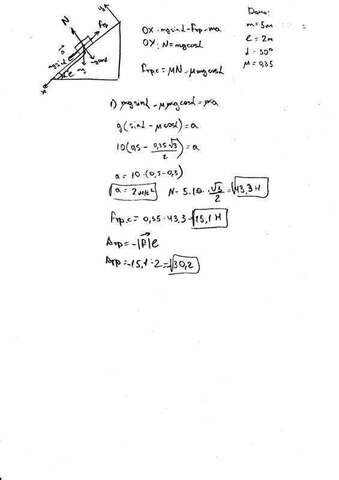 y
N
Fтр
mgsinα
mgcosα
mg
α
x
OX: mgsinα - Fтр = ma
OY: N = mgcosα
Fтр.c = μN = μmgcosα
Дано:
m = 5м
e = 2м
α = 30°
μ = 0,35
1) mgsinα - μmgcosα = ma
g(sinα - μcosα) = a
10(0,5 - 0,35·√3/2) = a
a = 10·(0,5-0,3)
a = 2м/с² N = 5·10·√3/2 = 43,3 Н
Fтр.c = 0,35·43,3 = 15,1 Н
Aтр = -|F|e
Aтр = -15,1·2 = 30,2